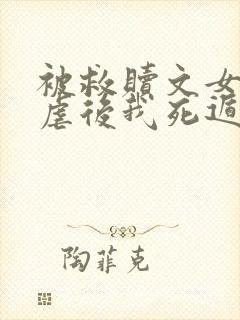 被救贖文女
虐後我死遁
陶菲克